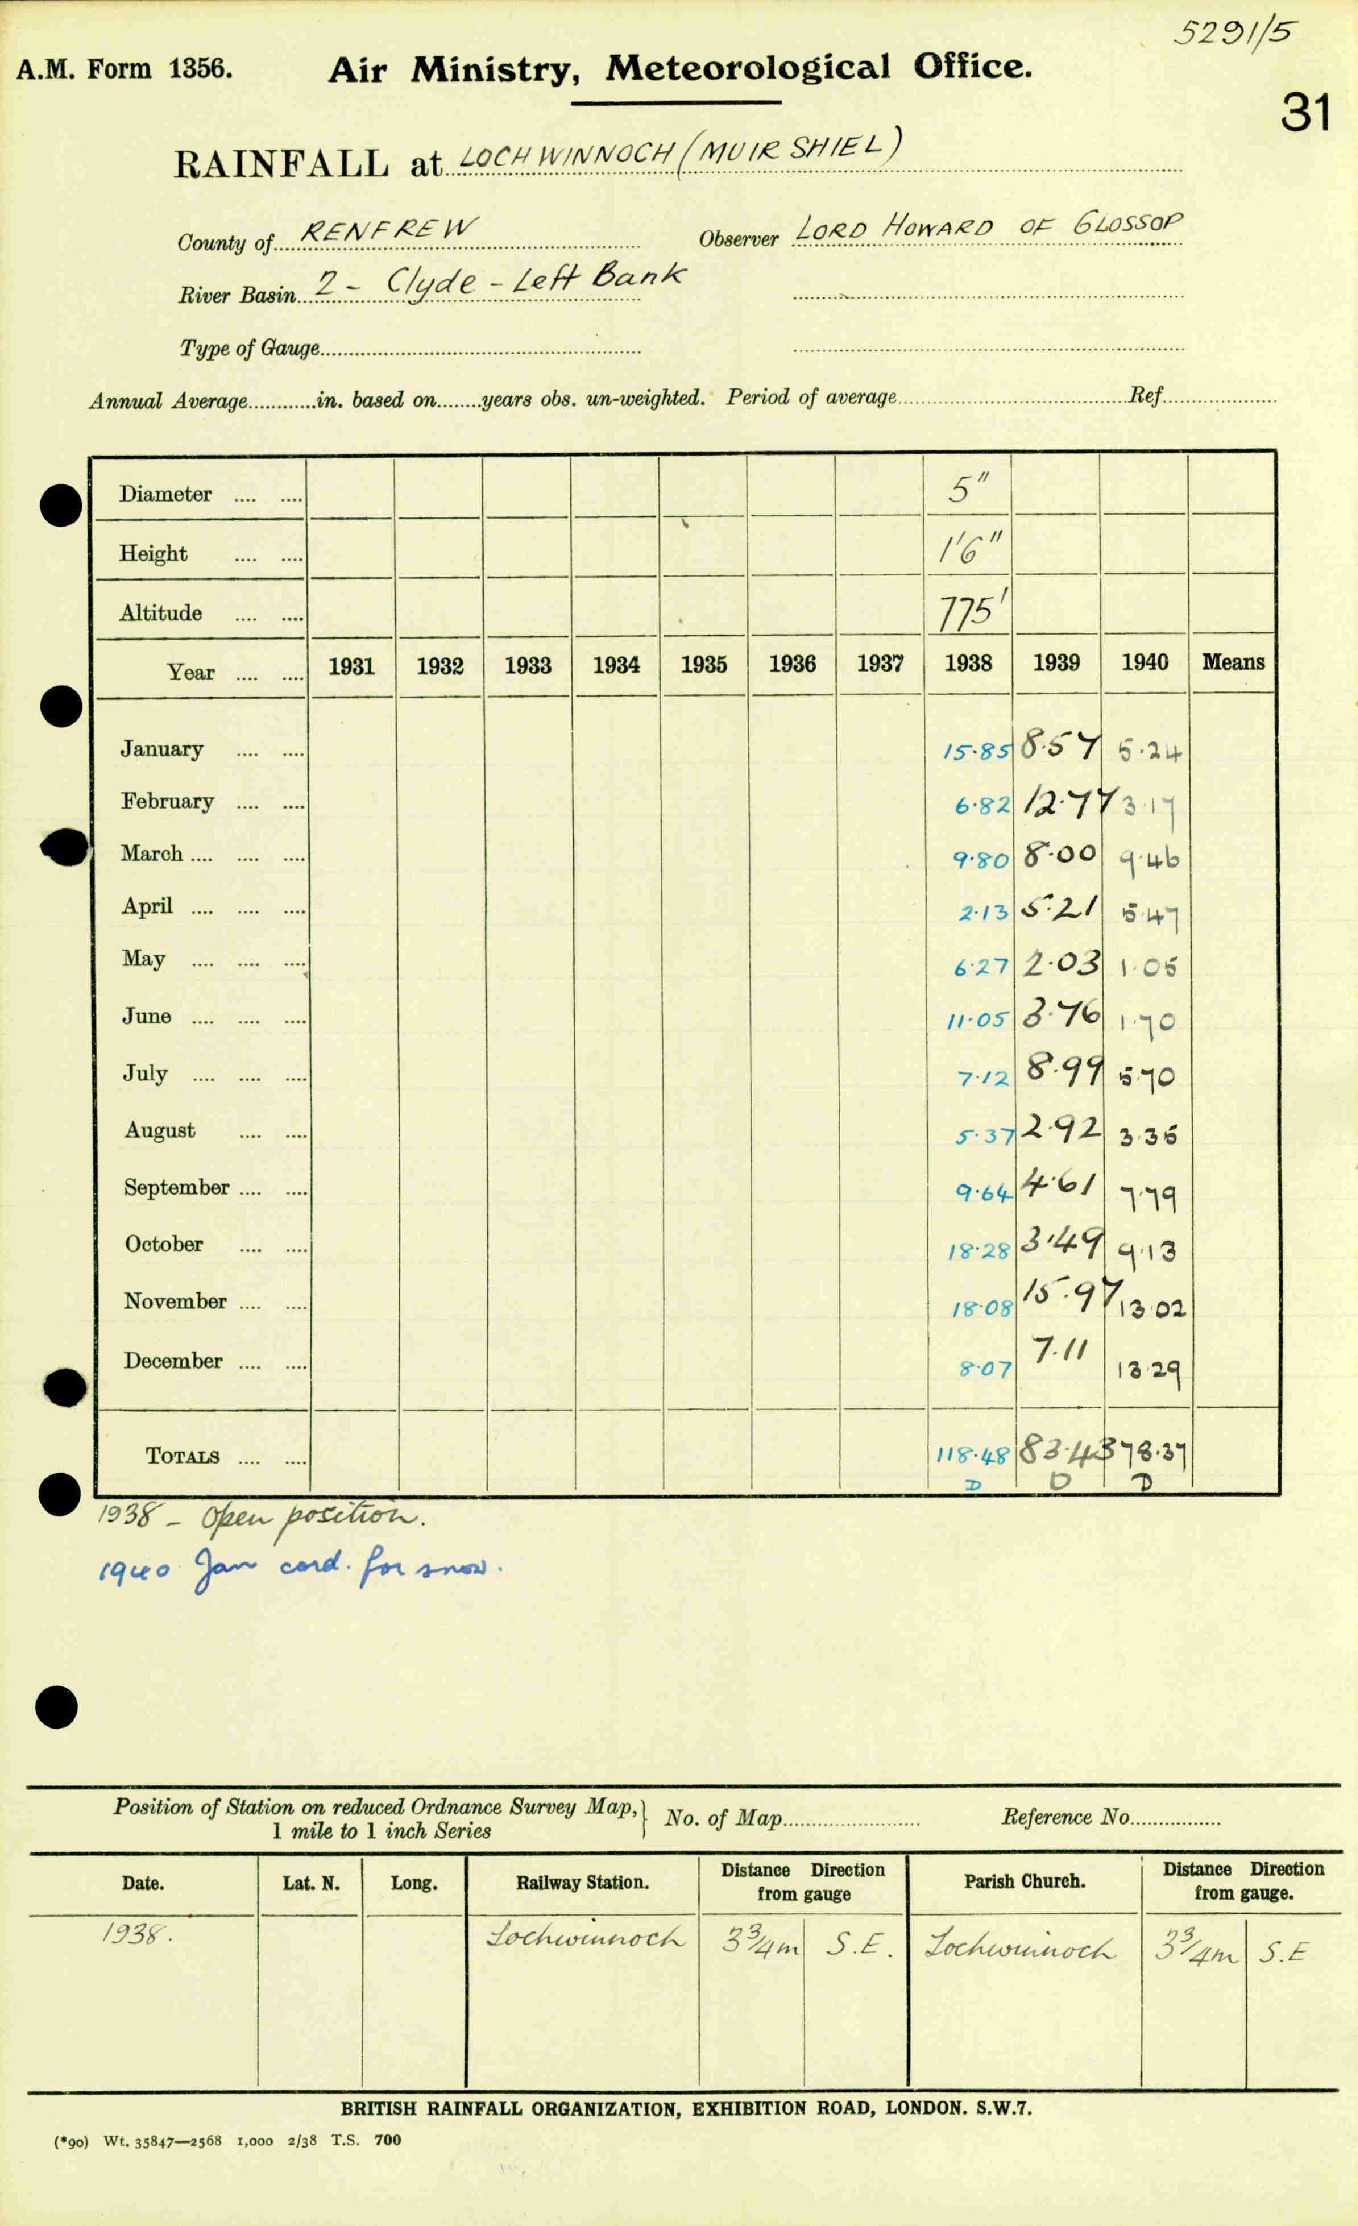 5291/5
A.M. Form 1356. Air Ministry, Meteorological Office.
31
RAINFALL at LOCHWINNOCH (MUIR SHIEL)
County of RENFREW Observer LORD HOWARD OF GLOSSOP
River Basin 2 - Clyde - Left Bank
Type of Gauge
Annual Average............in. based on........years obs. un-weighted. Period of average........Ref........
Diameter .... .... 5"
Height .... .... 1'6"
Altitude .... .... 775'
Year .... .... 1931 1932 1933 1934 1935 1936 1937 1938 1939 1940 Means
January .... .... 15·85 8·57 5·24
February .... .... 6·82 12·77 3·17
March .... .... .... 9·80 8·00 9·46
April .... .... .... 2·13 5·21 5·47
May .... .... .... 6·27 2·03 1·05
June .... .... .... 11·05 3·76 1·70
July .... .... .... 7·12 8·99 5·70
August .... .... 5·37 2·92 3·35
September .... .... 9·64 4·61 7·79
October .... .... 18·28 3·49 9·13
November .... .... 18·08 15·97 13·02
December .... .... 8·07 7·11 13·29
TOTALS .... .... 118·48 83·43 78·37
D D D
1938 - Open position.
1940 Jan cord. for snow.
Position of Station on reduced Ordnance Survey Map, } No. of Map........ Reference No........
1 mile to 1 inch Series
Date. Lat. N. Long. Railway Station. Distance Direction from gauge Parish Church. Distance Direction from gauge.
1938. Lochwinnoch 3¾m S.E. Lochwinnoch 3¾m S.E
BRITISH RAINFALL ORGANIZATION, EXHIBITION ROAD, LONDON. S.W.7.
(*90) Wt. 35847—2568 1,000 2/38 T.S. 700